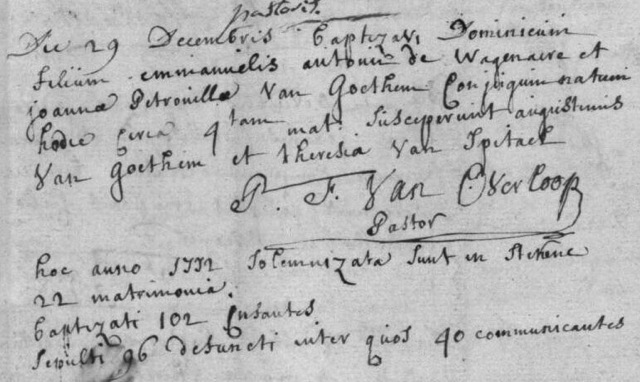 pastoris.
Die 29 Decembris baptizavi Dominicum
filium emmanuelis antonii de Wagenaere et
joannæ Petronillæ Van Goethem Conjugum natum
hodie circa 4tam mat. susceperunt augustinus
Van Goethem et theresia Van Spitael
P. F. Van Overloop
Pastor
hoc anno 1772 solemnizata sunt in stekene
22 matrimonia.
baptizati 102 Infantes
sepulti 96 defuncti inter quos 40 communicantes